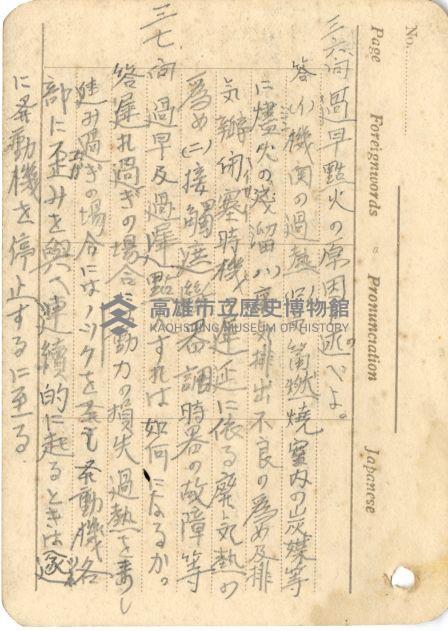 No.
Page Foreignwords Pronunciation Japanese
三六、問 過早點火の原因を述べよ。
答(イ)機関の過熱(ロ)筒燃焼室内の炭煤等
に燼火の残留(ハ)廃気排出不良の為め及排
気瓣開塞時機 正に依る廃気熱の
為め(ニ)接觸遮断器不調時器の故障等
三七、問 過早及過遅點火すれば如何になるか。
答 遅れ過ぎの場合は動力の損失過熱を来し
進み過ぎの場合にはノックを 発動機各
部に歪みを與へ連續的に起るときは遂
に発動機を停止するに至る
高雄市立歷史博物館
KAOHSIUNG MUSEUM OF HISTORY